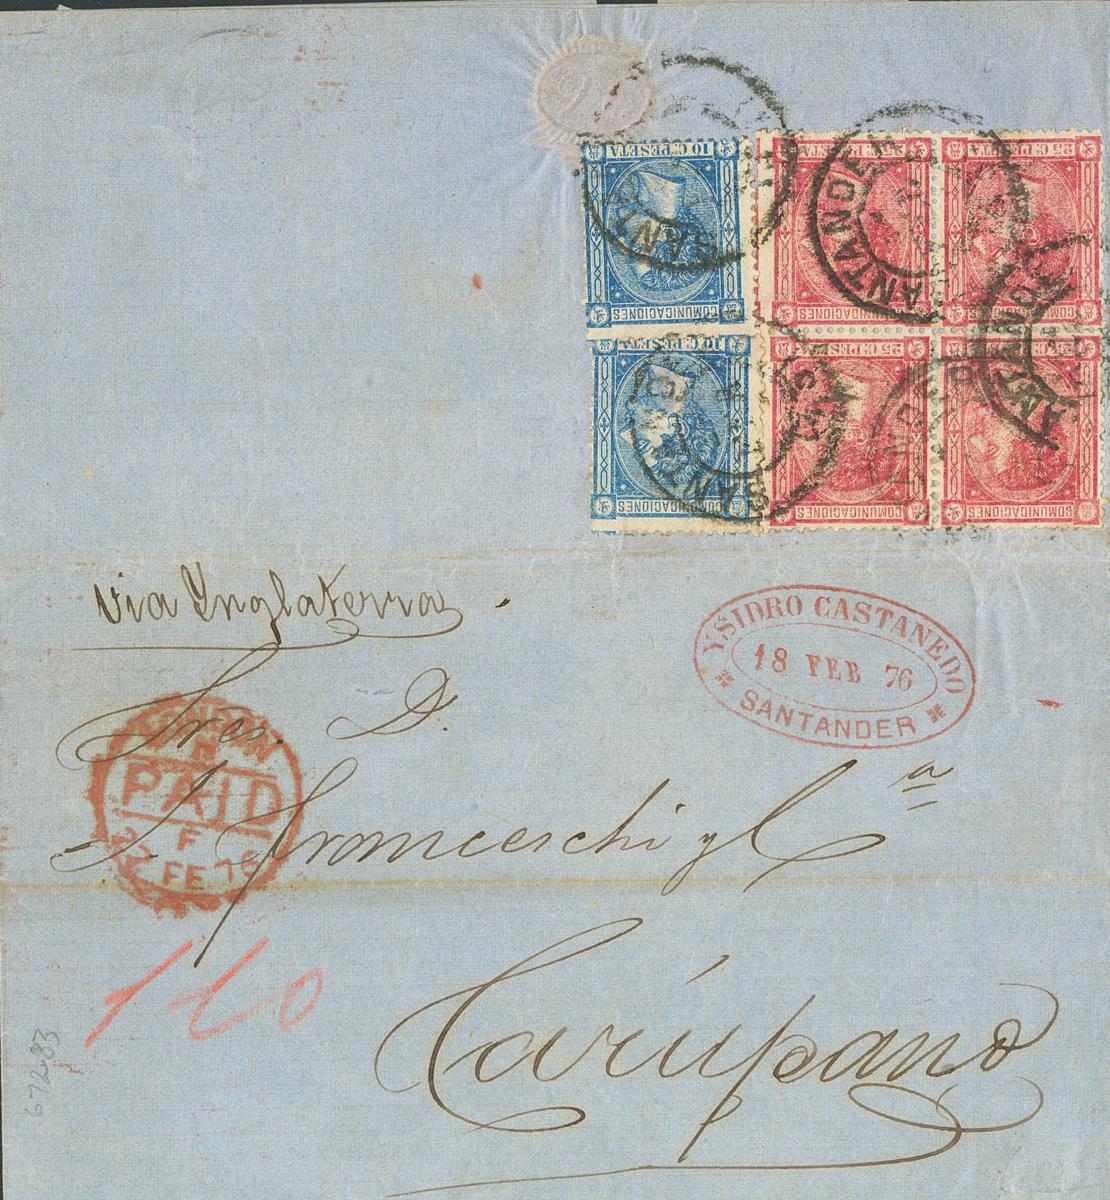 10 C. PESETA
25 C. PESETA
25 C. PESETA
COMUNICACIONES
COMUNICACIONES
COMUNICACIONES
10 C. PESETA
25 C. PESETA
25 C. PESETA
COMUNICACIONES
COMUNICACIONES
COMUNICACIONES
SANTANDER
SANTANDER
Via Ynglaterra
YSIDRO CASTANEDO
18 FEB 76
SANTANDER
Sres. D.
J. Franceschi y Cª
Carúpano
LONDON
N
PAID
F
22 FE 76
67283